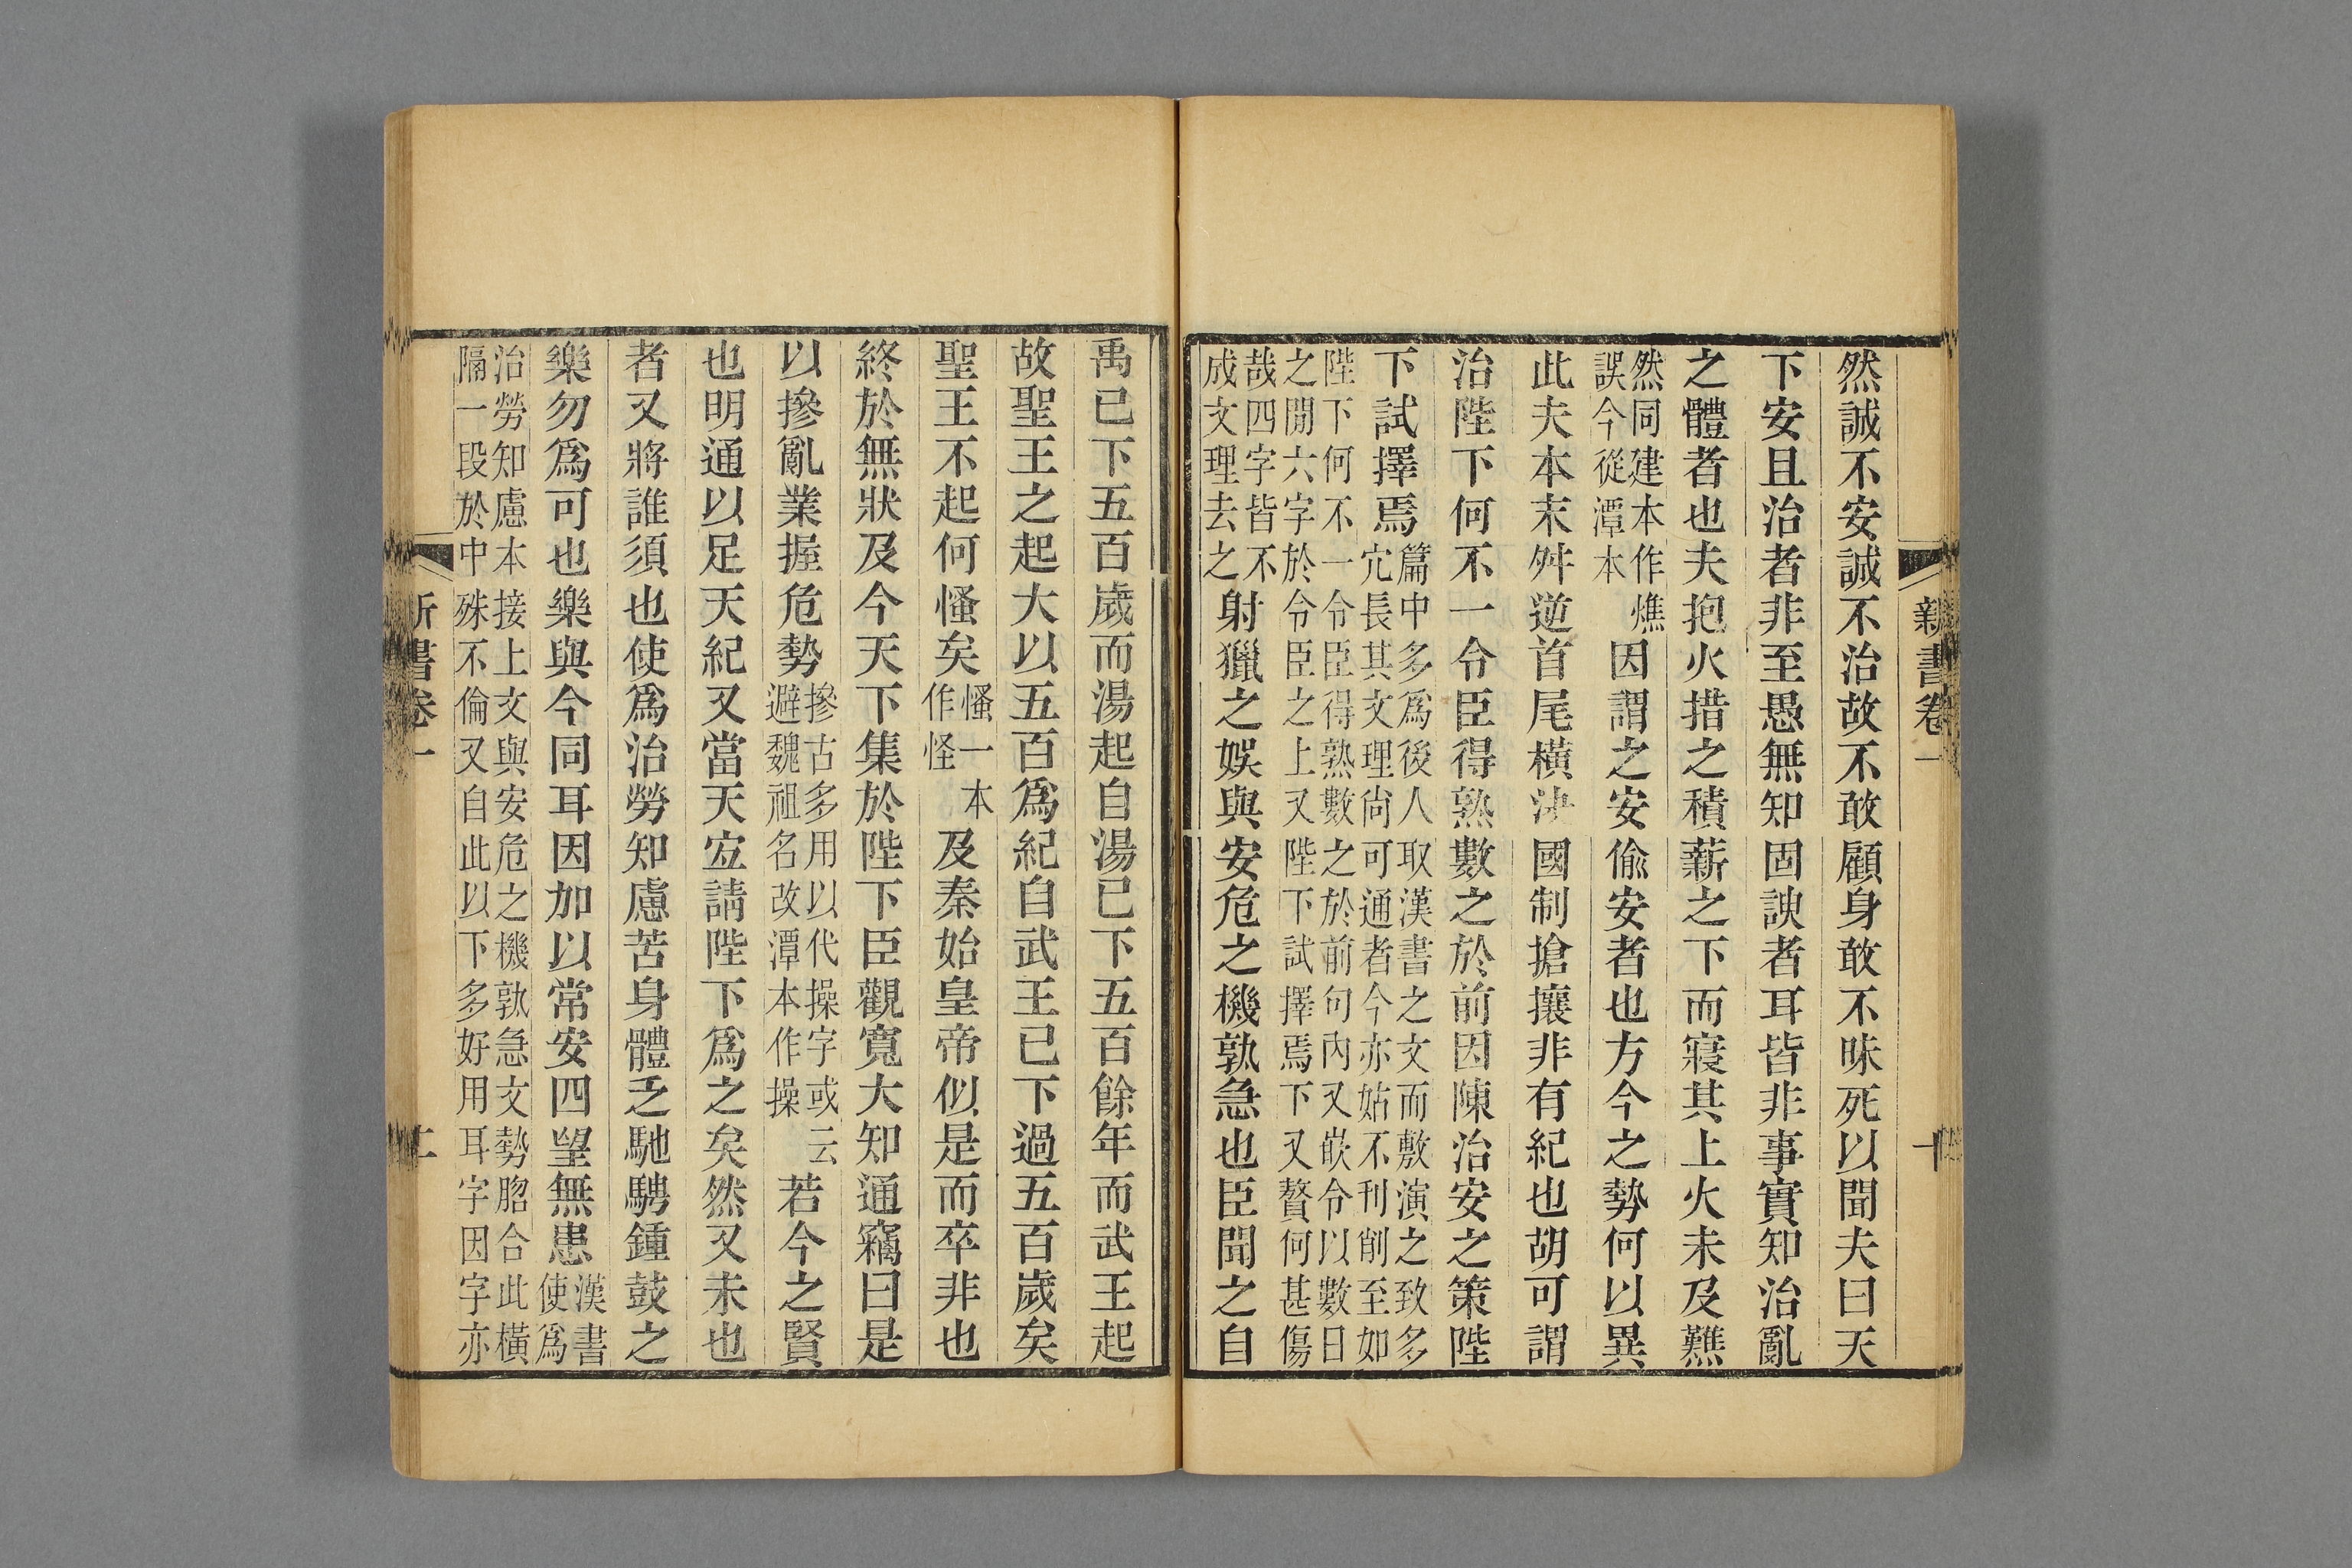 新書卷一　十
然誠不安誠不治故不敢顧身敢不昧死以聞夫曰天
下安且治者非至愚無知固諛者耳皆非事實知治亂
之體者也夫抱火措之積薪之下而寢其上火未及㸐
然同建本作燋
誤今從潭本
因謂之安偷安者也方今之勢何以異
此夫本末舛逆首尾橫決國制搶攘非有紀也胡可謂
治陛下何不一令臣得熟數之於前因陳治安之策陛
下試擇焉
篇中多爲後人取漢書之文而敷演之致多
冗長其文理尚可通者今亦姑不刊削至如
陛下何不一令臣得熟數之於前句內又嵌令以數日
之閒六字於令臣之上又陛下試擇焉下又贅何甚傷
哉四字皆不
成文理去之
射獵之娛與安危之機孰急也臣聞之自
禹已下五百歲而湯起自湯已下五百餘年而武王起
故聖王之起大以五百爲紀自武王已下過五百歲矣
聖王不起何慅矣
慅一本
作怪
及秦始皇帝似是而卒非也
終於無狀及今天下集於陛下臣觀寬大知通竊曰是
以摻亂業握危勢
摻古多用以代操字或云
避魏祖名改潭本作操
若今之賢
也明通以足天紀又當天宐請陛下爲之矣然又未也
者又將誰須也使爲治勞知慮苦身體乏馳騁鍾鼓之
樂勿爲可也樂與今同耳因加以常安四望無患
漢書
使爲
治勞知慮本接上文與安危之機孰急文勢脗合此橫
隔一段於中殊不倫又自此以下多好用耳字因字亦
新書卷一　十一